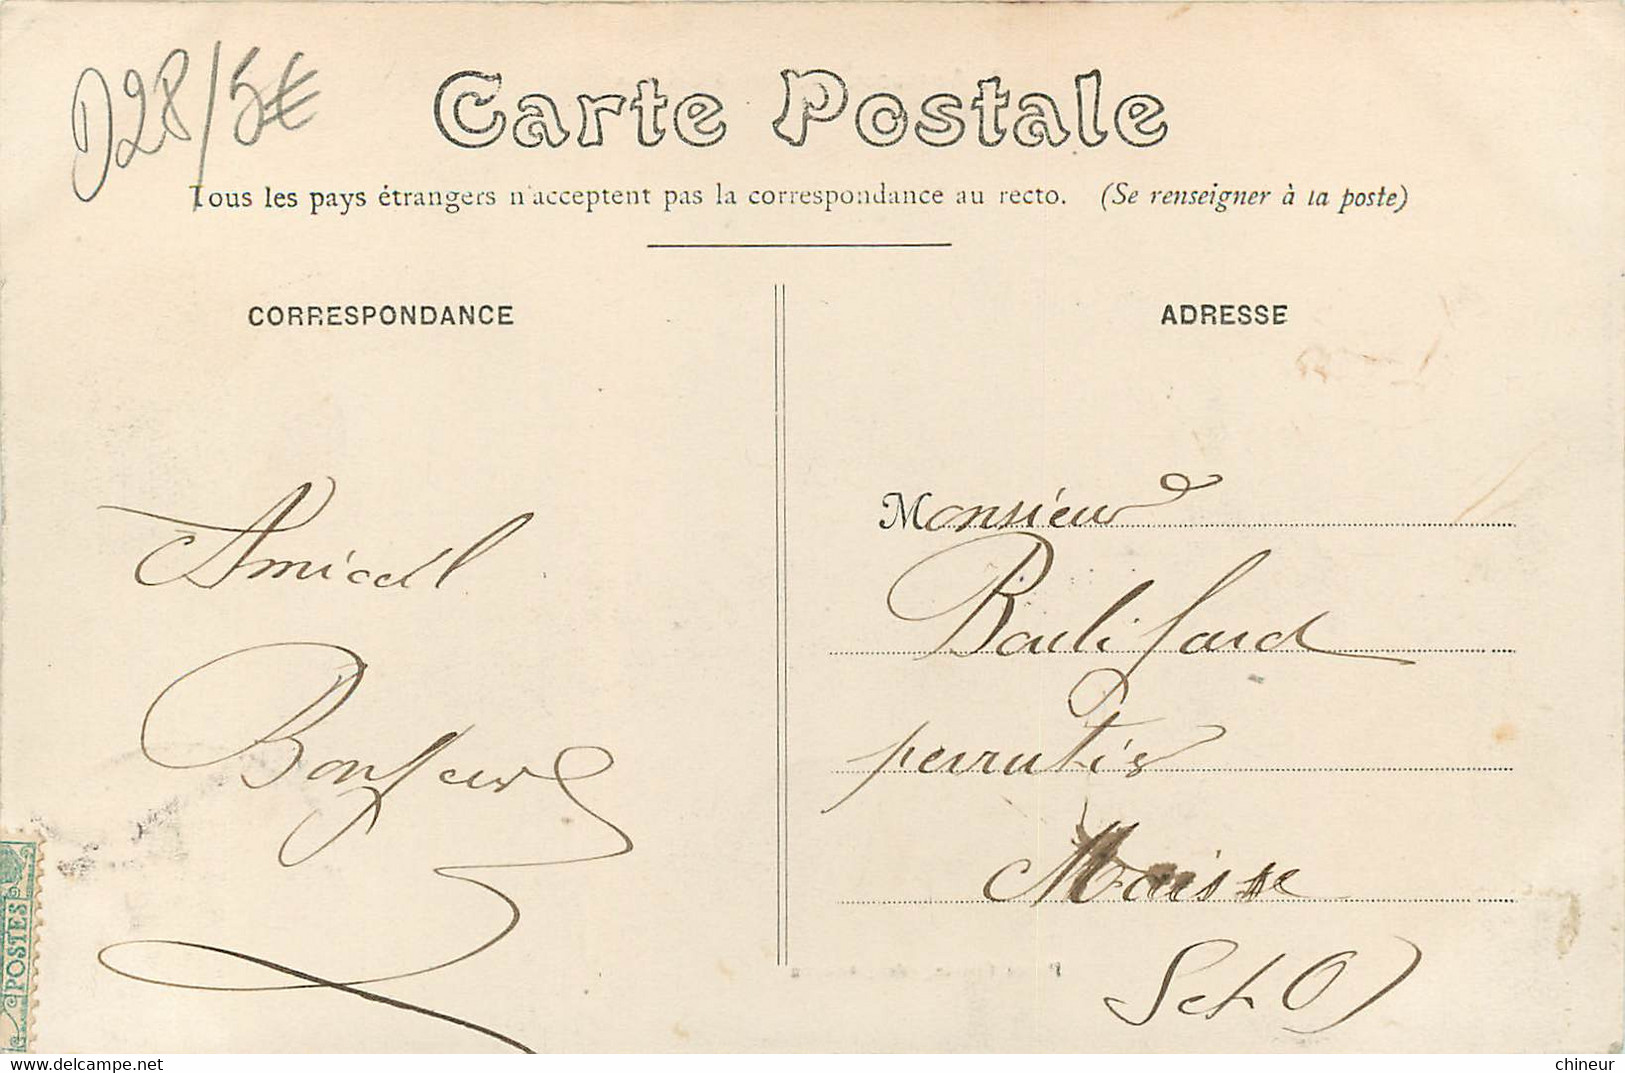 D28/5€
Carte Postale
Tous les pays étrangers n'acceptent pas la correspondance au recto. (Se renseigner à la poste)
CORRESPONDANCE
Amical
ADRESSE
Monsieur
perrutier
Maisse
S et O
POSTES
chineur
delcampe.net